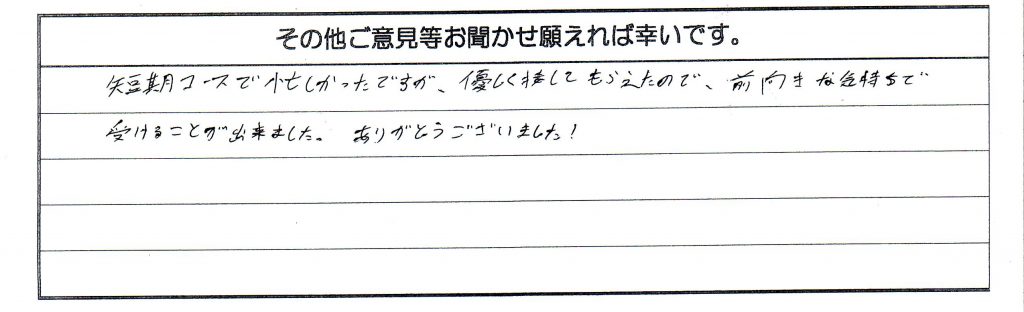 その他ご意見等お聞かせ願えれば幸いです。
短期コースで忙しかったですが、優しく接してもらえたので、前向きな気持ちで
受けることが出来ました。 ありがとうございました!